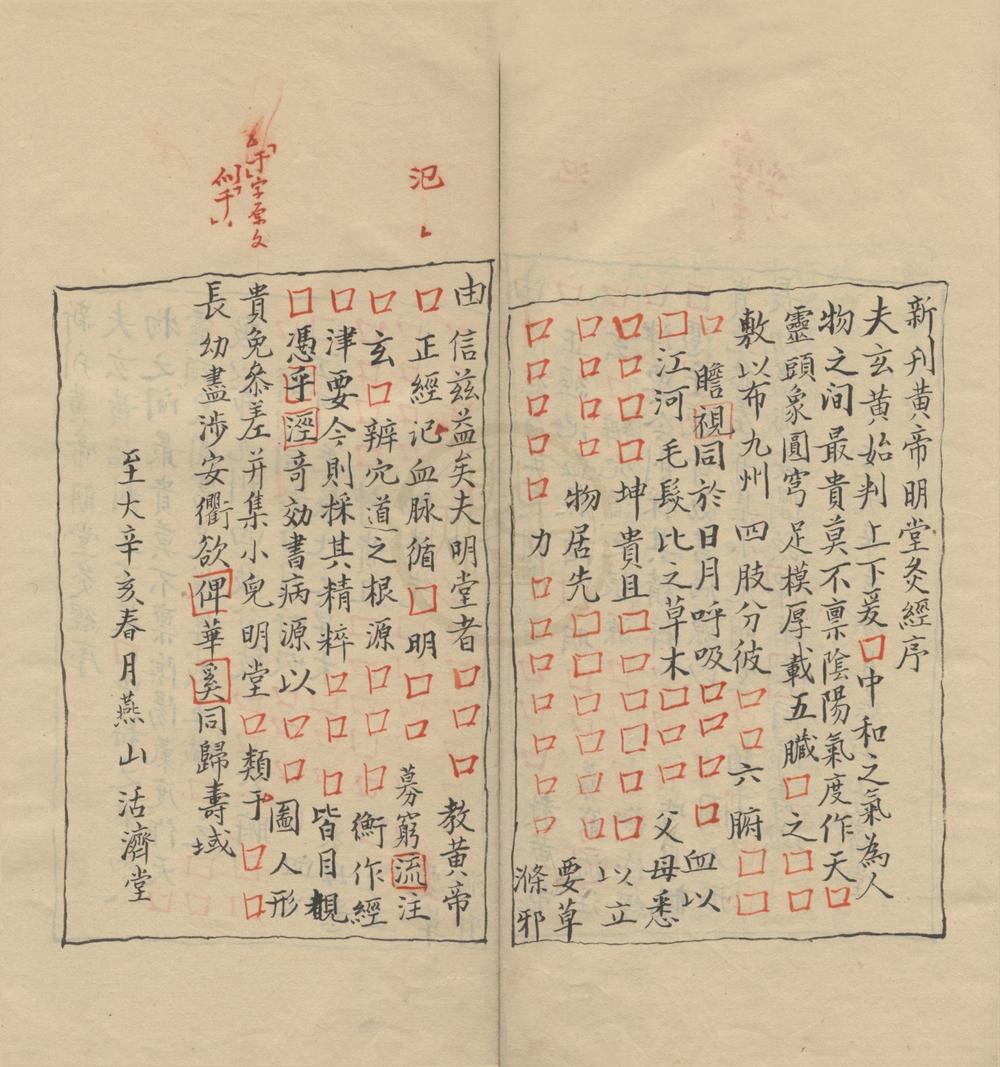 新刋黄帝明堂灸經序
夫玄黄始判上下爰□中和之氣為人
物之间最貴莫不禀隂陽氣度作天□
靈頭象圓穹足模厚載五臟□之□□
敷以布九州四肢分彼□□六腑□□
□瞻視同於日月呼吸□□□□血以
□江河毛髮比之草木□□□父母悉
□□□□坤貴且□□□□□□以立
□□□□物居先□□□□□□要草
□□□□□力□□□□□□□滌邪
由信兹益矣夫明堂者□□□教黄帝
□正經记血脉循□明□□募窮流注
□玄□辨穴道之根源□□□衡作經
□津要今則採其精粹□□□皆目觀
□憑乎涇竒効書病源以□□圖人形
貴免叅差并集小兒明堂□類于□□
長幼盡涉安衢欲俾華奚同歸壽域
至大辛亥春月燕山活濟堂
氾
「于」字原文
似「千」